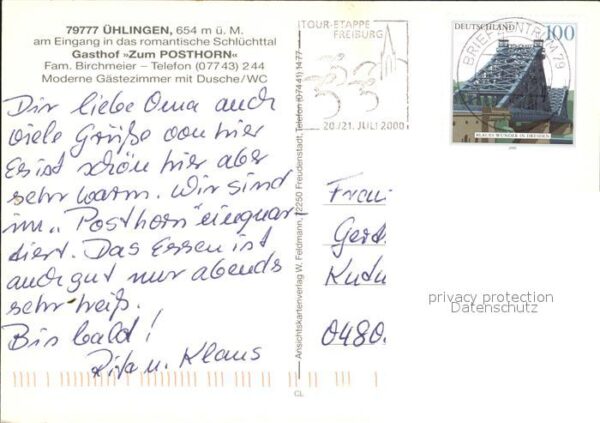 79777 ÜHLINGEN, 654 m ü. M.
am Eingang in das romantische Schlüchttal
Gasthof »Zum POSTHORN«
Fam. Birchmeier – Telefon (07743) 244
Moderne Gästezimmer mit Dusche/WC
Dir liebe Oma auch
viele Grüße von hier
Es ist schön hier aber
sehr warm. Wir sind
im „Posthorn" einquar
tiert. Das Essen ist
auch gut nur abends
sehr heiß.
Bis bald!
Rita u. Klaus
Ansichtskartenverlag W. Feldmann, 72250 Freudenstadt, Telefon (07441) 1477
CL
TOUR-ETAPPE
FREIBURG
20./21. JULI 2000
BRIEFZENTRUM 79
DEUTSCHLAND 100
BLAUES WUNDER IN DRESDEN
2000
Frau
Gert
Kudu
0480
privacy protection
Datenschutz